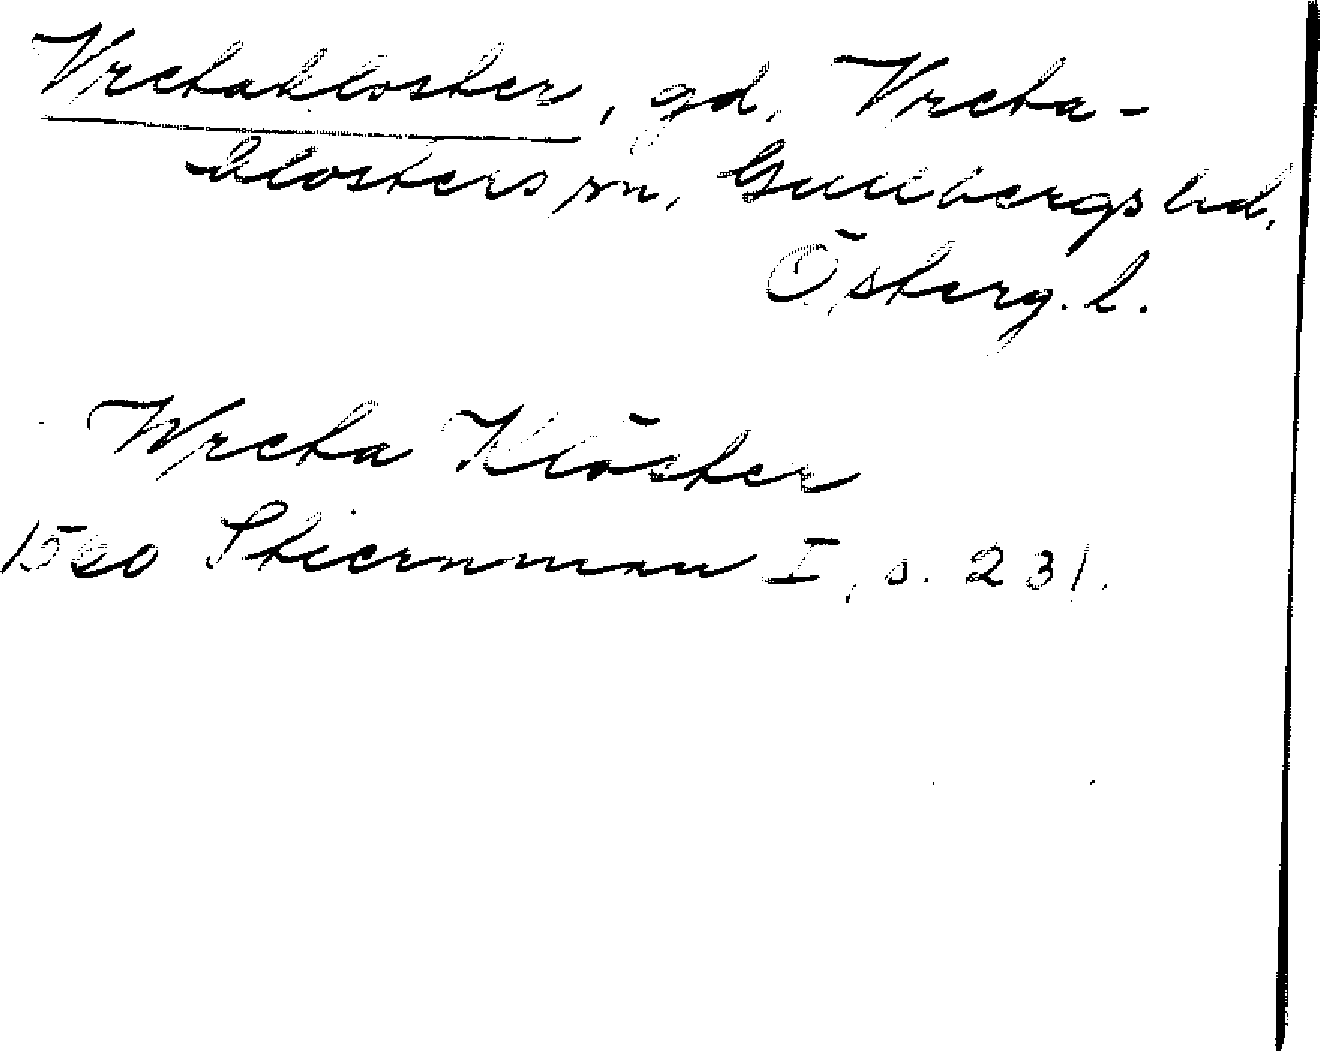 Vretakloster, gd, Vreta-
klosters sn, Gullbergs hd,
Österg. l.
Wreta Klöster
Stiernman I, s. 231.